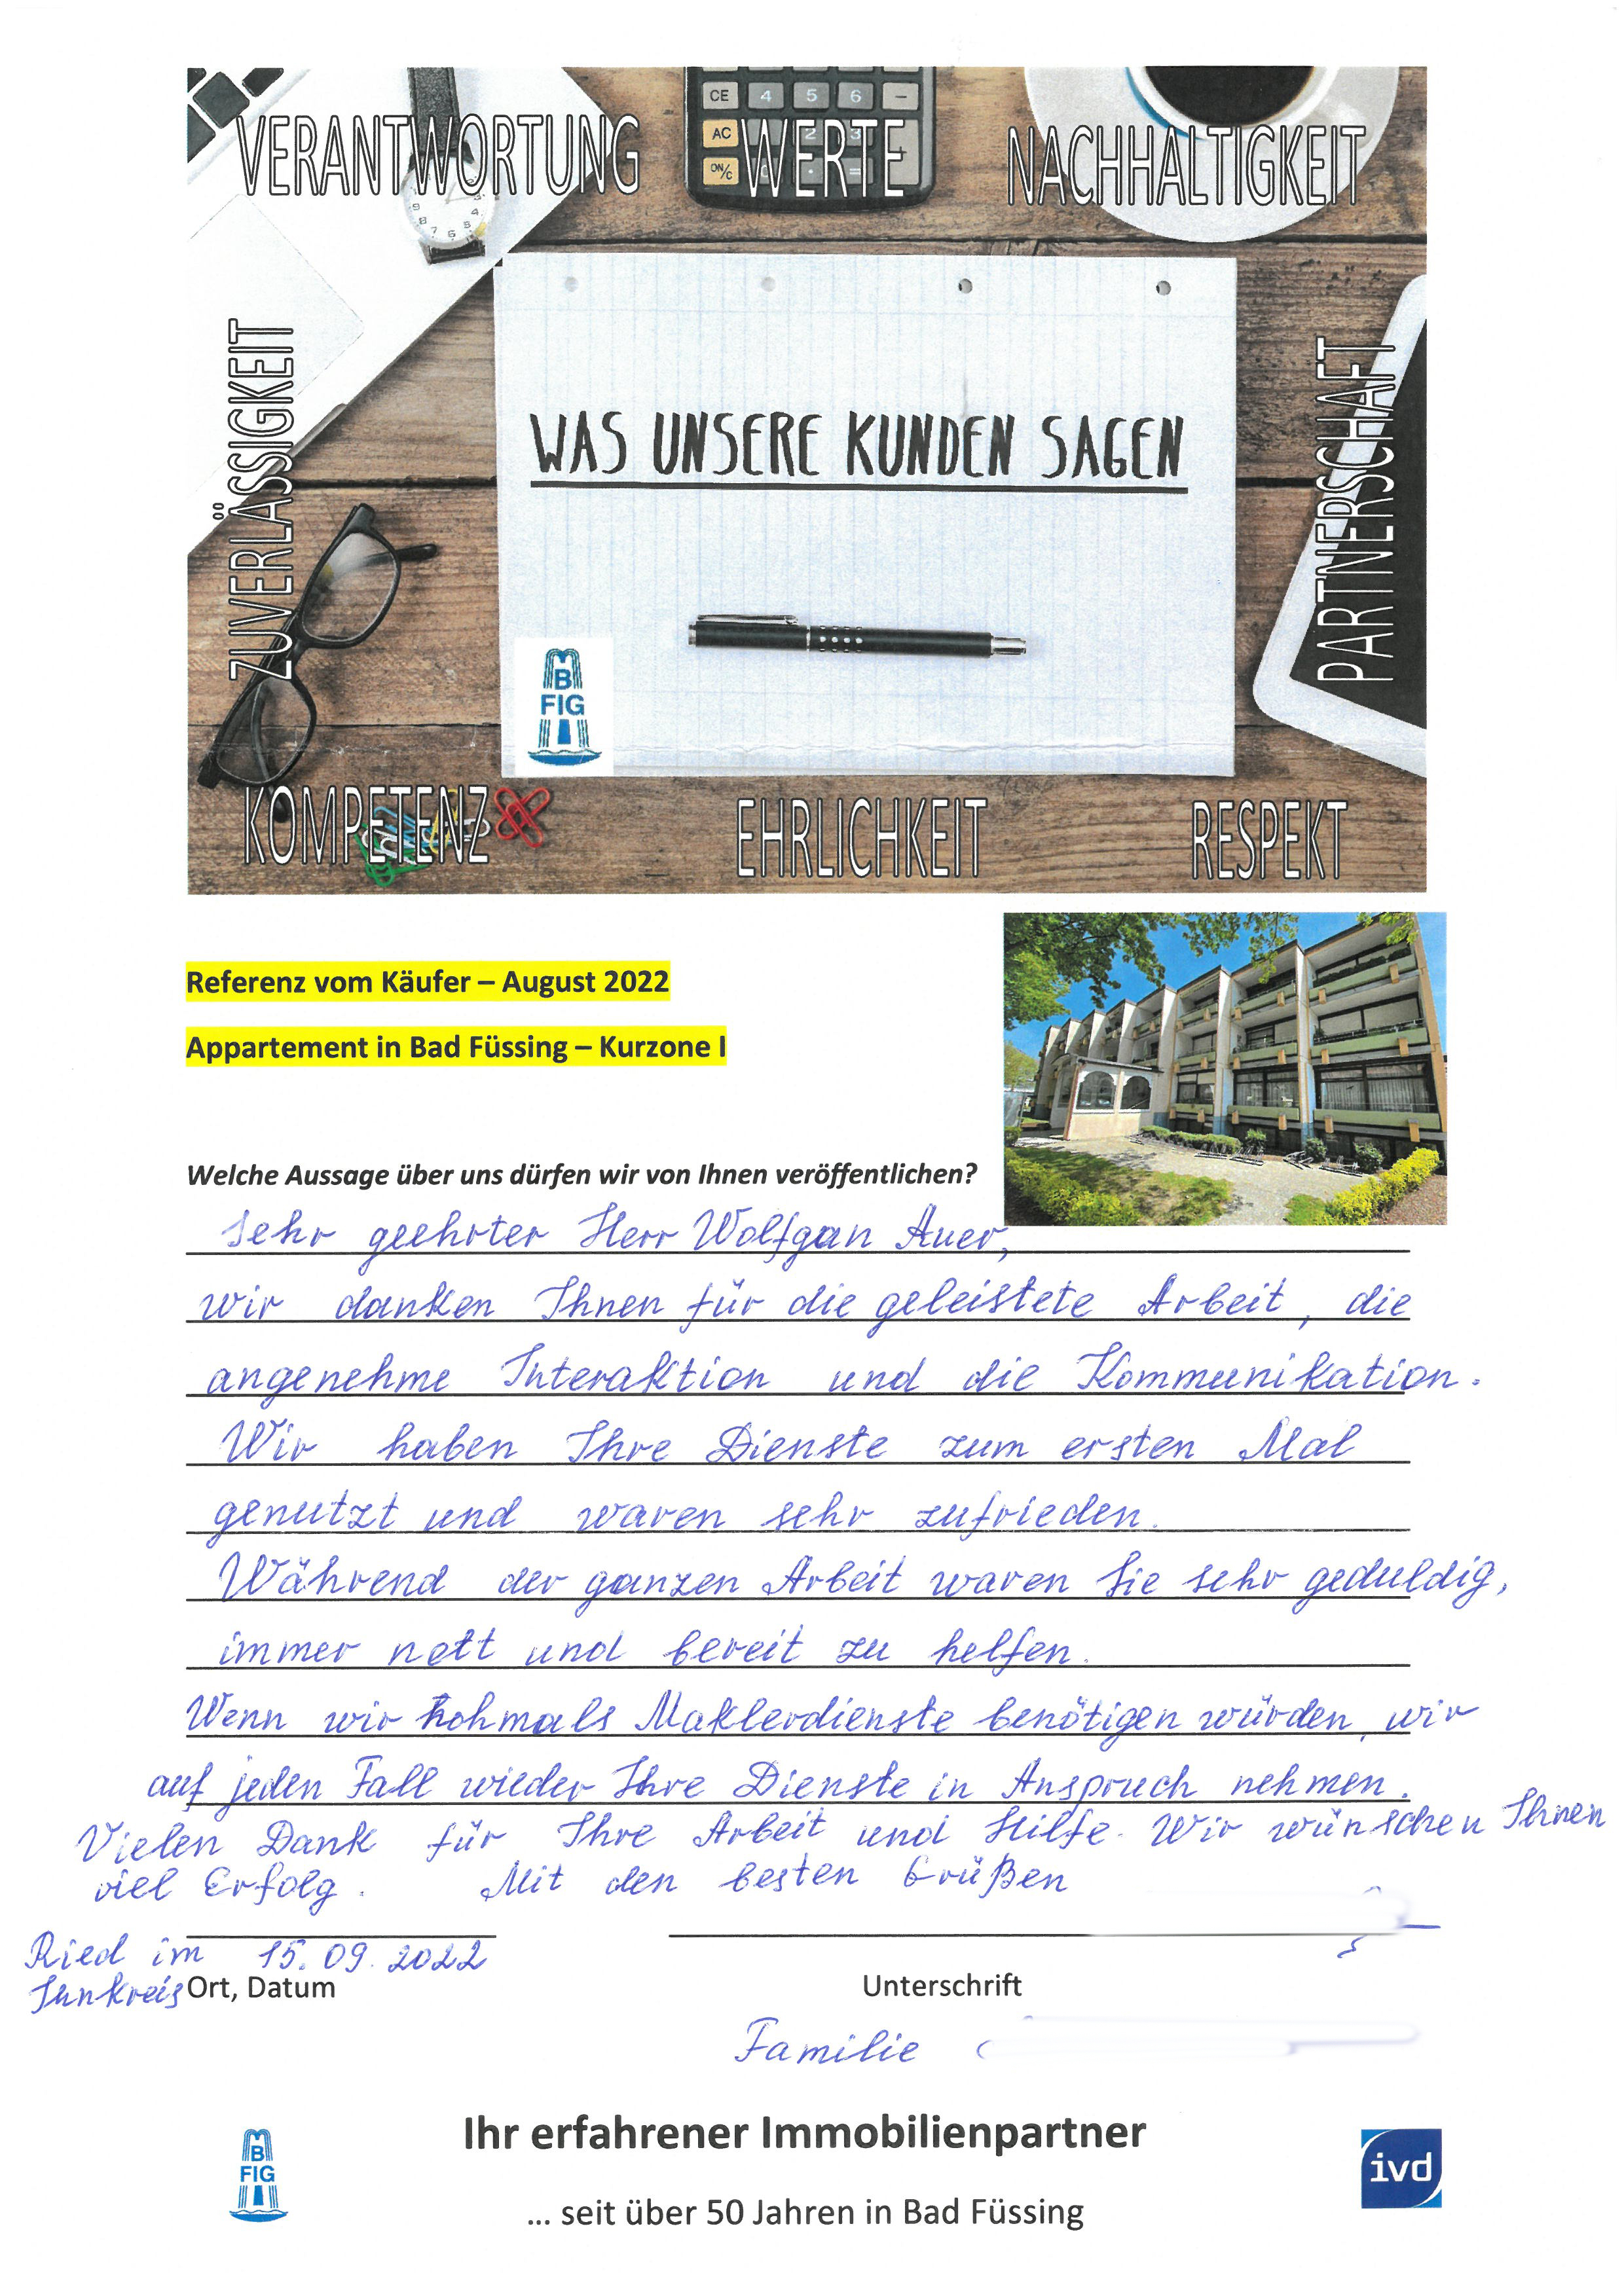 VERANTWORTUNG WERTE NACHHALTIGKEIT
CE 4 5 6 −
AC 2 3
ON/C
ZUVERLÄSSIGKEIT
WAS UNSERE KUNDEN SAGEN
PARTNERSCHAFT
B
FIG
KOMPETENZ EHRLICHKEIT RESPEKT
Referenz vom Käufer – August 2022
Appartement in Bad Füssing – Kurzone I
Welche Aussage über uns dürfen wir von Ihnen veröffentlichen?
Sehr geehrter Herr Wolfgan Auer,
wir danken Ihnen für die geleistete Arbeit, die
angenehme Interaktion und die Kommunikation.
Wir haben Ihre Dienste zum ersten Mal
genutzt und waren sehr zufrieden.
Während der ganzen Arbeit waren Sie sehr geduldig,
immer nett und bereit zu helfen.
Wenn wir nohmals Maklerdienste benötigen würden, wir
auf jeden Fall wieder Ihre Dienste in Anspruch nehmen.
Vielen Dank für Ihre Arbeit und Hilfe. Wir wünschen Ihnen
viel Erfolg. Mit den besten Grüßen
Ried im 15.09.2022
Innkreis Ort, Datum Unterschrift
Familie
Ihr erfahrener Immobilienpartner
B
FIG
ivd
... seit über 50 Jahren in Bad Füssing